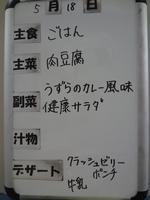 5月18日
主食 ごはん
主菜 肉豆腐
副菜 うずらのカレー風味
健康サラダ
汁物
デザート クラッシュゼリー
ポンチ
牛乳